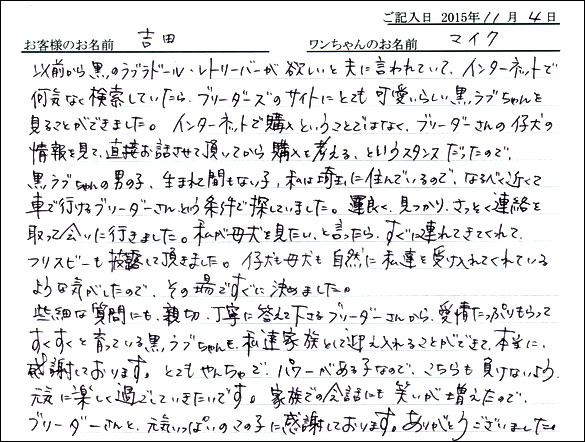 ご記入日 2015年11月4日
お客様のお名前 吉田 ワンちゃんのお名前 マイク
以前から黒のラブラドール・レトリーバーが欲しいと夫に言われていて、インターネットで
何気なく検索していたら、ブリーダーズのサイトにとても可愛いらしい黒ラブちゃんを
見ることができました。インターネットで購入ということではなく、ブリーダーさんの仔犬の
情報を見て、直接お話させて頂いてから購入を考える、というスタンスだったので、
黒ラブちゃんの男の子、生まれて間もない子、私は埼玉に住んでいるので、なるべく近くて
車で行けるブリーダーさんという条件で探していました。運良く、見つかり、さっそく連絡を
取って会いに行きました。私が母犬を見たい、と言ったら、すぐに連れてきてくれて、
フリスビーも披露して頂きました。仔犬も母犬も自然に私達を受け入れてくれている
ような気がしたので、その場ですぐに決めました。
些細な質問にも、親切、丁寧に答えて下さるブリーダーさんから、愛情たっぷりもらって
すくすくと育っている黒ラブちゃんを、私達家族として迎え入れることができて、本当に、
感謝しております。とてもやんちゃで、パワーがある子なので、こちらも負けないよう、
元気に楽しく過ごしていきたいです。家族での会話にも笑いが増えたので、
ブリーダーさんと、元気いっぱいのこの子に感謝しております。ありがとうございました。